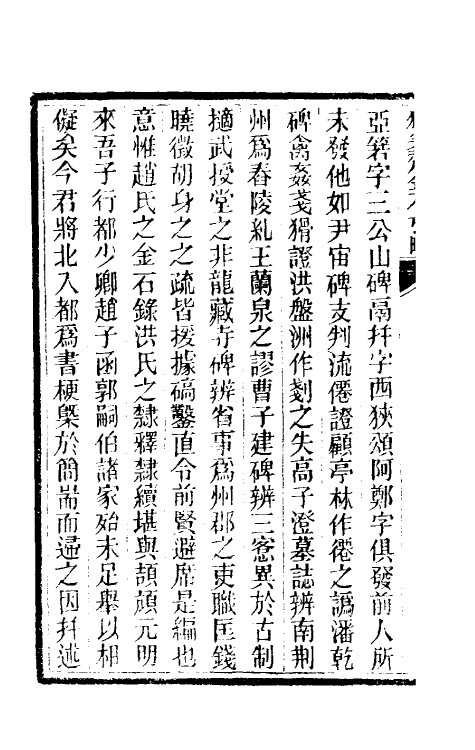 亞箬字三公山碑鬲幷字西狹頌阿鄭字俱發前人所
未發他如尹宙碑支判流僊證顧亭林作僊之譌潘乾
碑禽姦戔猾證洪盤洲作剗之失高子澄墓誌辨南荆
州爲舂陵糺王蘭泉之謬曹子建碑辨三窓異於古制
擿武授堂之非龍藏寺碑辨省事爲州郡之吏職匡錢
曉徵胡身之之疏皆援據碻鑿直令前賢避席是編也
意惟趙氏之金石錄洪氏之隸釋隸續堪與頡頏元明
來吾子行都少卿趙子函郭嗣伯諸家始未足舉以相
儗矣今君將北入都爲書梗槩於簡耑而還之因幷述